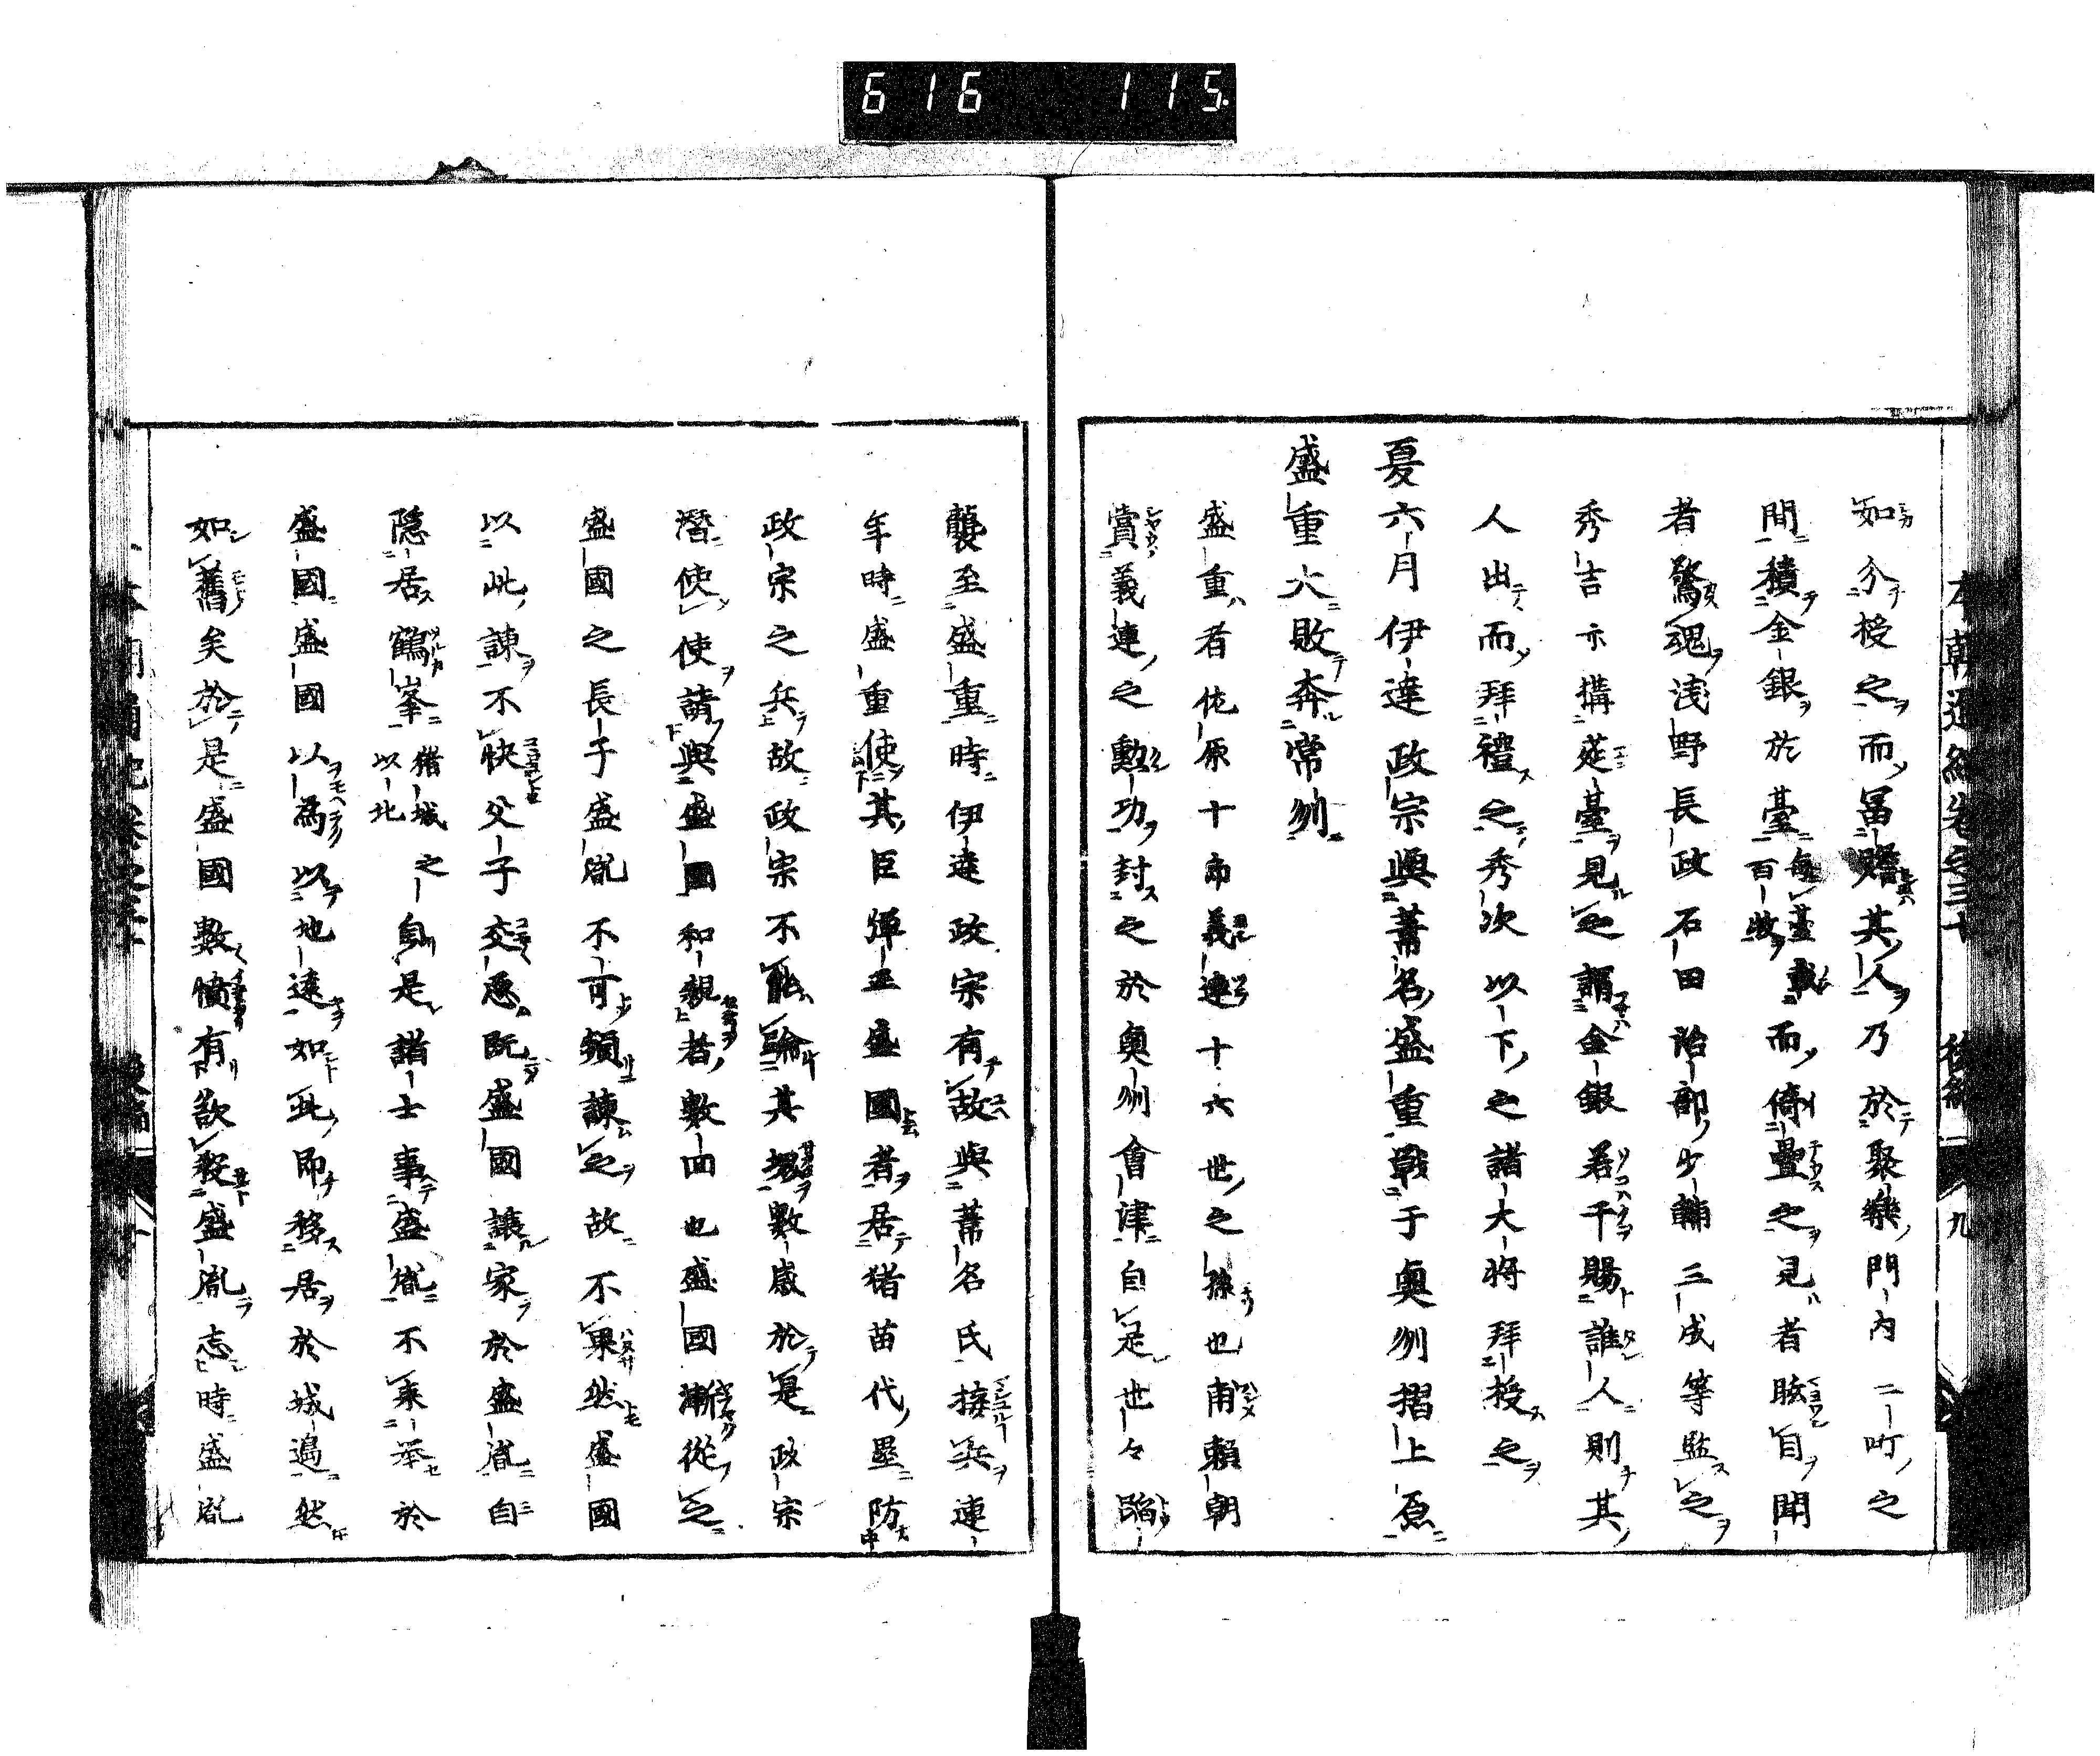 616 115
本朝通紀卷之三十 後編 九
如分授之而冨贈其人乃於聚樂門内二町之
間積金銀於臺每臺載百枚而倚疊之見者眩目聞
者驚魂浅野長政石田治部少輔三成等監之
秀吉亦搆莚臺見之謂金銀若干賜誰人則其
人出而拜禮之秀次以下之諸大将拜授之
夏六月伊達政宗與蘆名盛重戰于奥州摺上原
盛重大敗奔常州
盛重者佐原十郎義連十六世之孫也甫頼朝
賞義連之勳功封之於奥州會津自是世々蹈
襲至盛重時伊達政宗有故與蘆名氏接兵連
年時盛重使其臣弾正盛國者居猪苗代塁防
政宗之兵故政宗不能踰其堺數歳於是政宗
潛使使請與盛國和親者數回也盛國漸從之
盛國之長子盛胤不可頻諫之故不果然盛國
以此諫不快父子交悪既盛國讓家於盛胤自
隠居鶴峯猪城之以北自是諸士事盛胤不来挙於
盛國盛國以為以地遠如此即移居於城邊然
如舊矣於是盛國數憤有欲殺盛胤志時盛胤